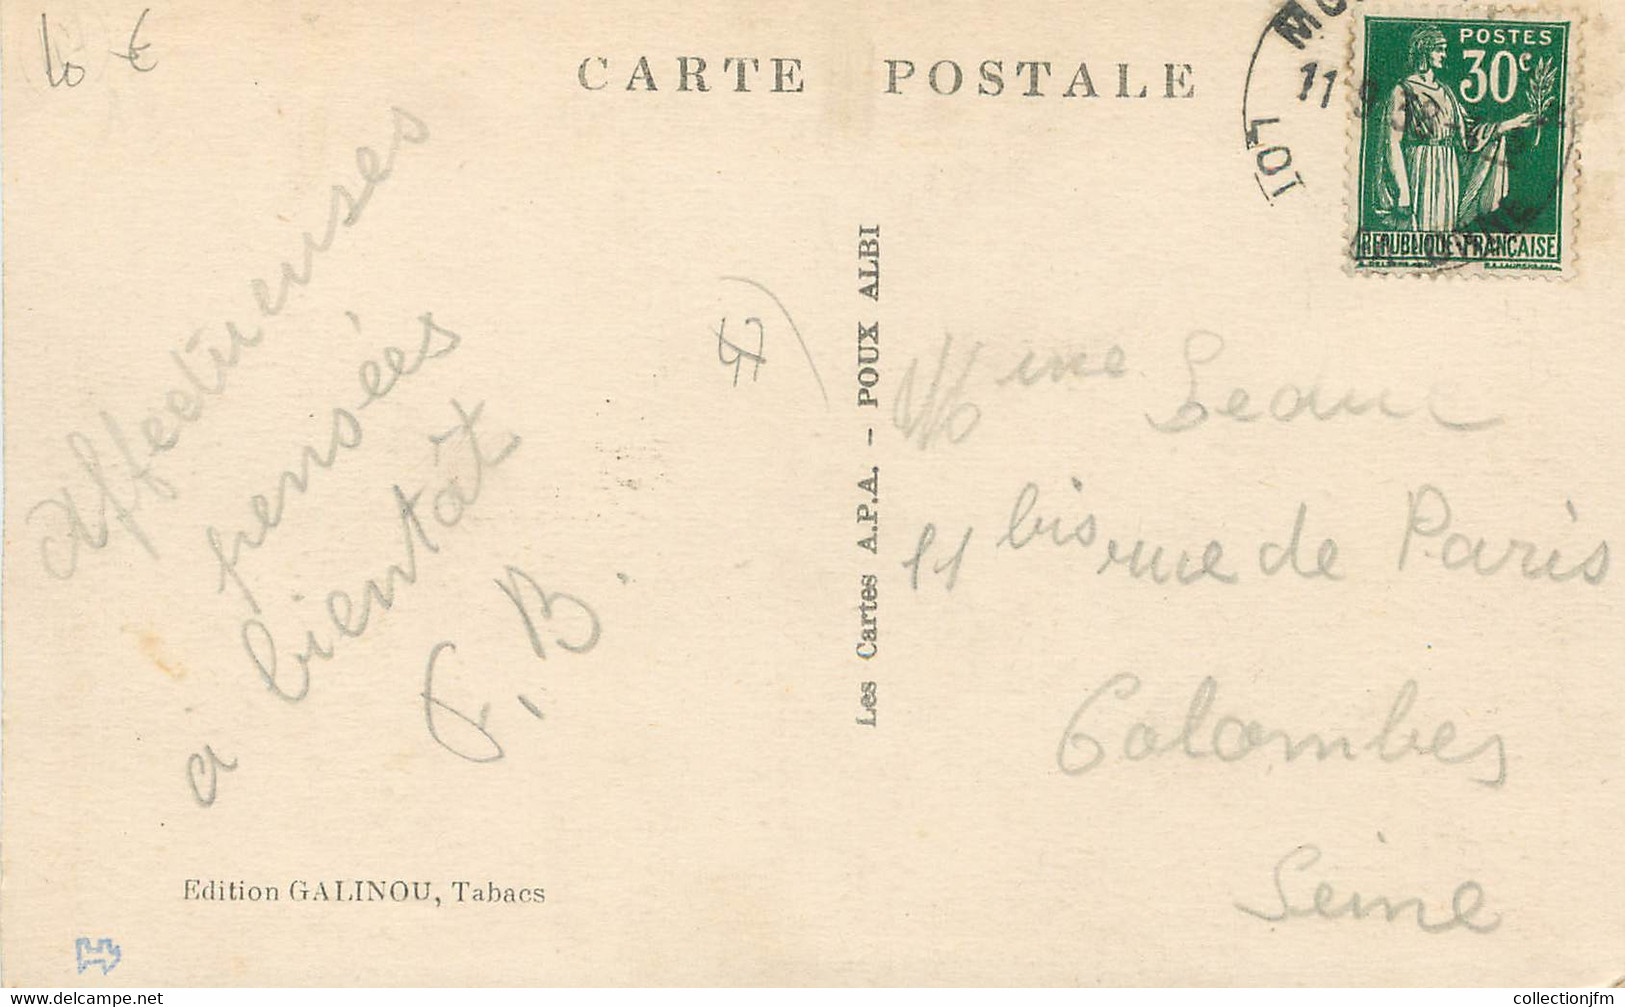 10 €
CARTE POSTALE
POSTES
30c
REPUBLIQUE FRANÇAISE
LOT
11
Affectueuses
pensées
à bientôt
G. B.
Les Cartes A.P.A. - POUX ALBI
Mme Seauc
11 bis rue de Paris
Colombes
Seine
Edition GALINOU, Tabacs
collectionjfm